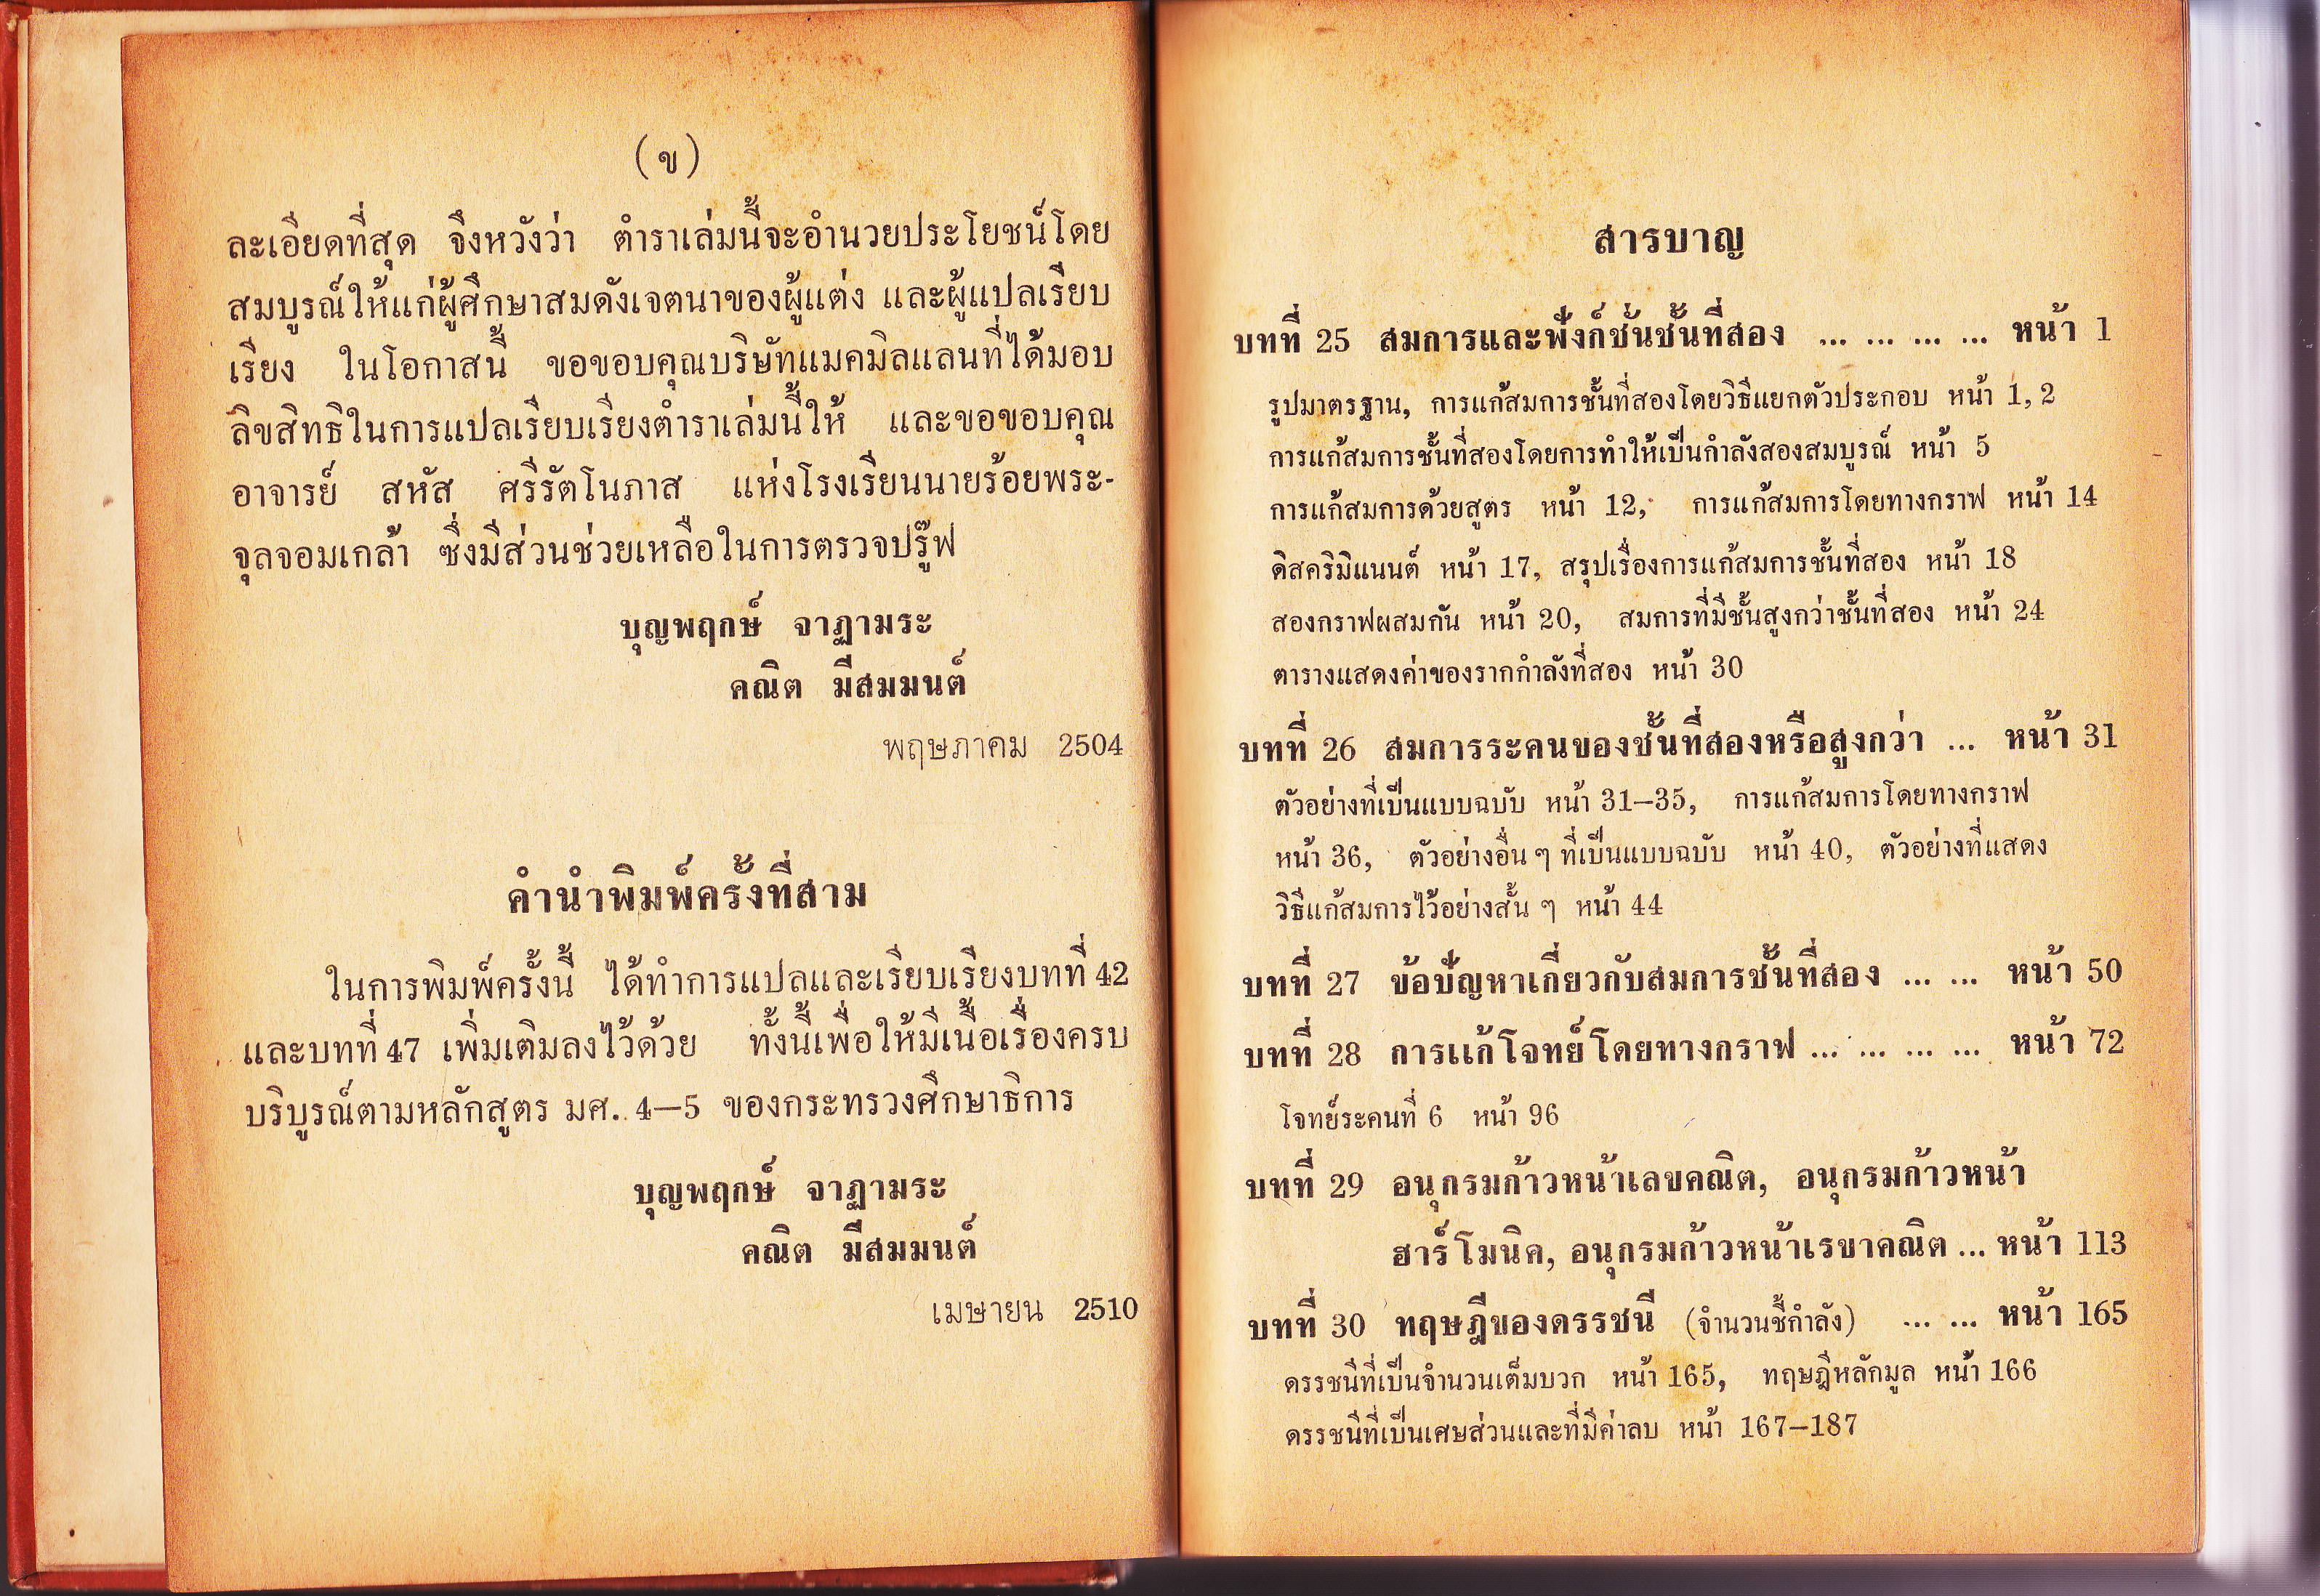 (ข)
ละเอียดที่สุด จึงหวังว่า ตำราเล่มนี้จะอำนวยประโยชน์โดย
สมบูรณ์ให้แก่ผู้ศึกษาสมดังเจตนาของผู้แต่ง และผู้แปลเรียบ
เรียง ในโอกาสนี้ ขอขอบคุณบริษัทแมคมิลแลนที่ได้มอบ
ลิขสิทธิในการแปลเรียบเรียงตำราเล่มนี้ให้ และขอขอบคุณ
อาจารย์ สหัส ศรีรัตโนภาส แห่งโรงเรียนนายร้อยพระ-
จุลจอมเกล้า ซึ่งมีส่วนช่วยเหลือในการตรวจปรู๊ฟ
บุญพฤกษ์ จาฏามระ
คณิต มีสมมนต์
พฤษภาคม 2504
คำนำพิมพ์ครั้งที่สาม
ในการพิมพ์ครั้งนี้ ได้ทำการแปลและเรียบเรียงบทที่ 42
และบทที่ 47 เพิ่มเติมลงไว้ด้วย ทั้งนี้เพื่อให้มีเนื้อเรื่องครบ
บริบูรณ์ตามหลักสูตร มศ. 4–5 ของกระทรวงศึกษาธิการ
บุญพฤกษ์ จาฏามระ
คณิต มีสมมนต์
เมษายน 2510
สารบาญ
บทที่ 25 สมการและฟังก์ชั่นชั้นที่สอง ... ... ... ... หน้า 1
รูปมาตรฐาน, การแก้สมการชั้นที่สองโดยวิธีแยกตัวประกอบ หน้า 1, 2
การแก้สมการชั้นที่สองโดยการทำให้เป็นกำลังสองสมบูรณ์ หน้า 5
การแก้สมการด้วยสูตร หน้า 12, การแก้สมการโดยทางกราฟ หน้า 14
ดิสคริมิแนนต์ หน้า 17, สรุปเรื่องการแก้สมการชั้นที่สอง หน้า 18
สองกราฟผสมกัน หน้า 20, สมการที่มีชั้นสูงกว่าชั้นที่สอง หน้า 24
ตารางแสดงค่าของรากกำลังที่สอง หน้า 30
บทที่ 26 สมการระคนของชั้นที่สองหรือสูงกว่า ... หน้า 31
ตัวอย่างที่เป็นแบบฉบับ หน้า 31–35, การแก้สมการโดยทางกราฟ
หน้า 36, ตัวอย่างอื่น ๆ ที่เป็นแบบฉบับ หน้า 40, ตัวอย่างที่แสดง
วิธีแก้สมการไว้อย่างสั้น ๆ หน้า 44
บทที่ 27 ข้อปัญหาเกี่ยวกับสมการชั้นที่สอง ... ... หน้า 50
บทที่ 28 การแก้โจทย์โดยทางกราฟ ... ... ... ... หน้า 72
โจทย์ระคนที่ 6 หน้า 96
บทที่ 29 อนุกรมก้าวหน้าเลขคณิต, อนุกรมก้าวหน้า
ฮาร์โมนิค, อนุกรมก้าวหน้าเรขาคณิต ... หน้า 113
บทที่ 30 ทฤษฎีของดรรชนี (จำนวนชี้กำลัง) ... ... หน้า 165
ดรรชนีที่เป็นจำนวนเต็มบวก หน้า 165, ทฤษฎีหลักมูล หน้า 166
ดรรชนีที่เป็นเศษส่วนและที่มีค่าลบ หน้า 167–187